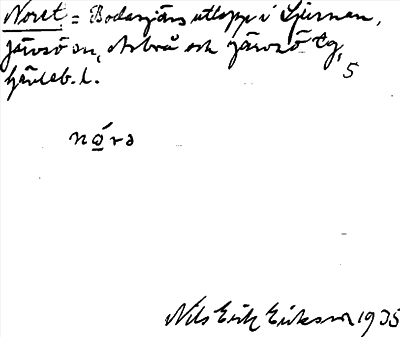 Noret = Bodasjöns utlopp i Ljusnan,
Järvsö sn, Arbrå och Järvsö tg,
Gävleb. l. 5
nórə
Nils Erik Eriksson 1935